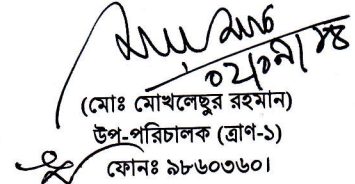 (মোঃ মোখলেছুর রহমান)
উপ-পরিচালক (ত্রাণ-১)
ফোনঃ ৯৮৬০৩৬০।